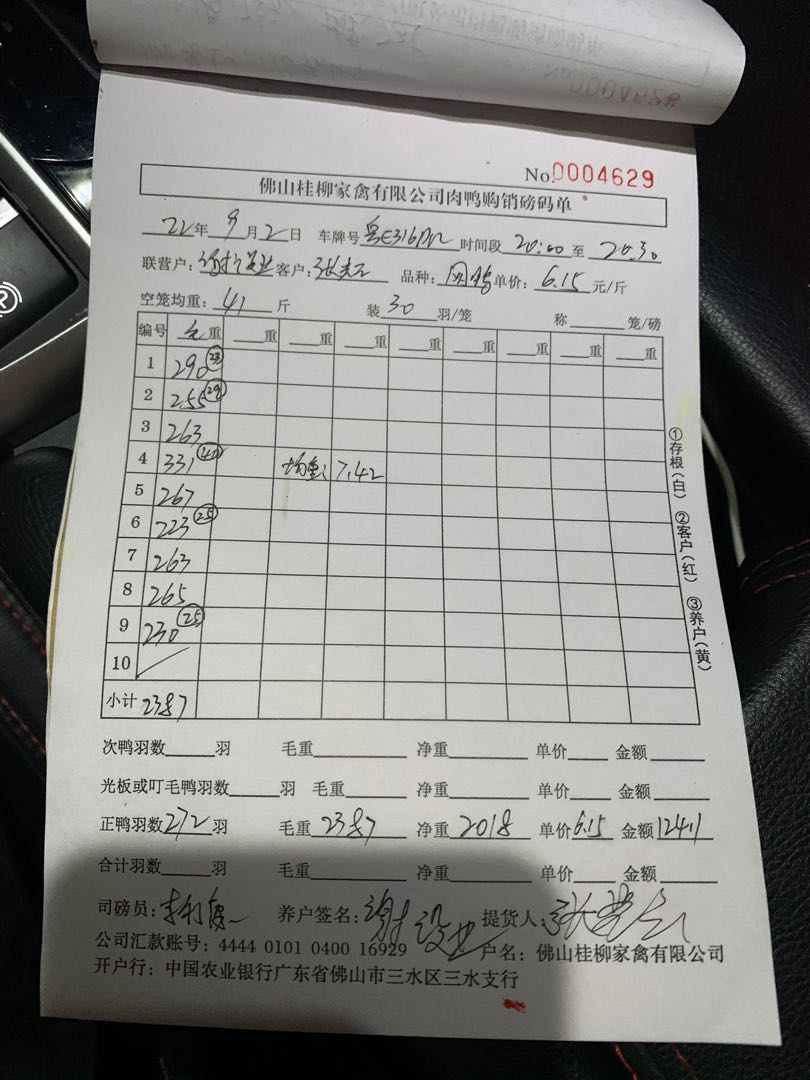 No.0004629
佛山桂柳家禽有限公司肉鸭购销磅码单
22年 9月2日 车牌号 时间段 20:00 至 20:30
联营户: 客户: 品种: 单价: 6.15 元/斤
空笼均重: 41 斤 装 30 羽/笼 称 笼/磅
编号 毛重 重 重 重 重 重 重 重 重
1 290
2 255 (29)
3 263
4 331 均重: 7.42
5 267
6 223 (25)
7 263
8 265
9 230 (25)
10
小计 2387
①存根(白) ②客户(红) ③养户(黄)
次鸭羽数 羽 毛重 净重 单价 金额
光板或叮毛鸭羽数 羽 毛重 净重 单价 金额
正鸭羽数 272 羽 毛重 2387 净重 2018 单价 6.15 金额 12411
合计羽数 羽 毛重 净重 单价 金额
司磅员: 养户签名: 提货人:
公司汇款账号: 4444 0101 0400 16929 户名: 佛山桂柳家禽有限公司
开户行: 中国农业银行广东省佛山市三水区三水支行